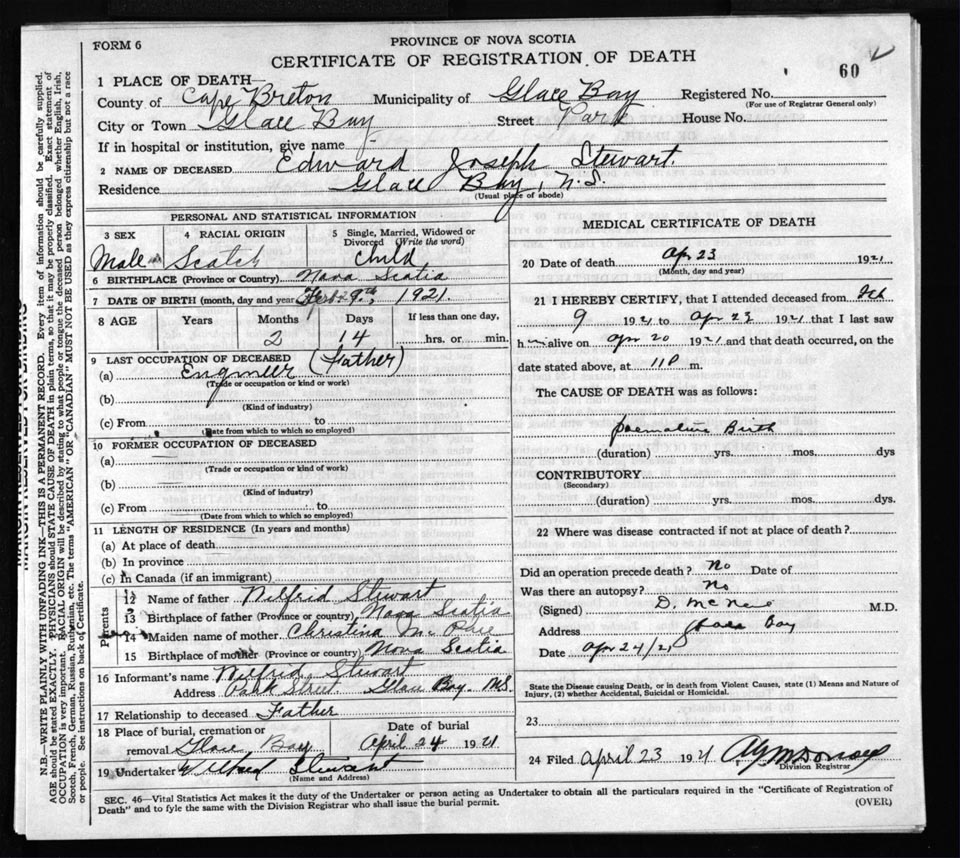 FORM 6
PROVINCE OF NOVA SCOTIA
CERTIFICATE OF REGISTRATION OF DEATH
60
1 PLACE OF DEATH—
County of Cape Breton Municipality of Glace Bay Registered No.
(For use of Registrar General only)
City or Town Glace Bay Street Park House No.
If in hospital or institution, give name
2 NAME OF DECEASED Edward Joseph Stewart.
Residence Glace Bay, N.S.
(Usual place of abode)
PERSONAL AND STATISTICAL INFORMATION
3 SEX 4 RACIAL ORIGIN 5 Single, Married, Widowed or
Divorced (Write the word)
Male Scotch Child
6 BIRTHPLACE (Province or Country) Nova Scotia
7 DATE OF BIRTH (month, day and year 9th, 1921.
8 AGE Years Months Days If less than one day,
2 14 hrs. or min.
9 LAST OCCUPATION OF DECEASED (Father)
(a) Engineer
(Trade or occupation or kind or work)
(b)
(Kind of industry)
(c) From to
(Date from which to which so employed)
10 FORMER OCCUPATION OF DECEASED
(a)
(Trade or occupation or kind or work)
(b)
(Kind of industry)
(c) From to
(Date from which to which so employed)
11 LENGTH OF RESIDENCE (In years and months)
(a) At place of death
(b) In province
(c) In Canada (if an immigrant)
Parents
12 Name of father Wilfrid Stewart
13 Birthplace of father (Province or country) Nova Scotia
14 Maiden name of mother Christina
15 Birthplace of mother (Province or country) Nova Scotia
16 Informant's name Wilfrid Stewart
Address Park Street. Glace Bay. N.S.
17 Relationship to deceased Father
18 Place of burial, cremation or Date of burial
removal Glace Bay April 24 1921
19 Undertaker Wilfred Stewart
(Name and Address)
MEDICAL CERTIFICATE OF DEATH
20 Date of death Apr 23 1921
(Month, day and year)
21 I HEREBY CERTIFY, that I attended deceased from Feb
9 1921 to Apr 1921 that I last saw
h alive on Apr 20 1921 and that death occurred, on the
date stated above, at 11 P m.
The CAUSE OF DEATH was as follows:
premature Birth
(duration) yrs. mos. dys
CONTRIBUTORY
(Secondary)
(duration) yrs. mos. dys.
22 Where was disease contracted if not at place of death?
Did an operation precede death? No Date of
Was there an autopsy? No
(Signed) D. McNeil M.D.
Address Glace Bay
Date Apr 24/21
State the Disease causing Death, or in death from Violent Causes, state (1) Means and Nature of
Injury, (2) whether Accidental, Suicidal or Homicidal.
23
24 Filed April 23 1921
Division Registrar
SEC. 46—Vital Statistics Act makes it the duty of the Undertaker or person acting as Undertaker to obtain all the particulars required in the "Certificate of Registration of
Death" and to fyle the same with the Division Registrar who shall issue the burial permit.
(OVER)
N.B.—WRITE PLAINLY WITH UNFADING INK—THIS IS A PERMANENT RECORD. Every item of information should be carefully supplied.
AGE should be stated EXACTLY. PHYSICIANS should STATE CAUSE OF DEATH in plain terms, so that it may be properly classified. Exact statement of
OCCUPATION is very important. RACIAL ORIGIN will be described by stating to what people or tongue the deceased person belonged whether English, Irish,
Scotch, French, German, Russian, Ruthenian, etc. The terms "AMERICAN" OR "CANADIAN" MUST NOT BE USED as they express citizenship but not a race
or people. See instructions on back of Certificate.